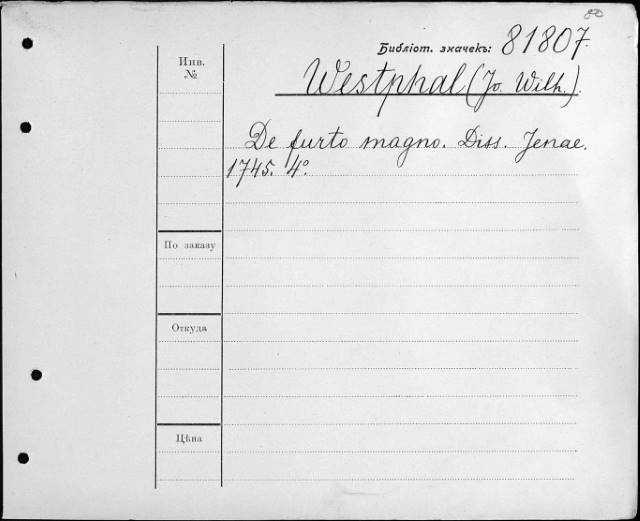 80
Библіот. значекъ: 81807.
Инв.
№
Westphal (Jo. Wilh.).
De furto magno. Diss. Jenae.
1745. 4°.
По заказу
Откуда
Цѣна